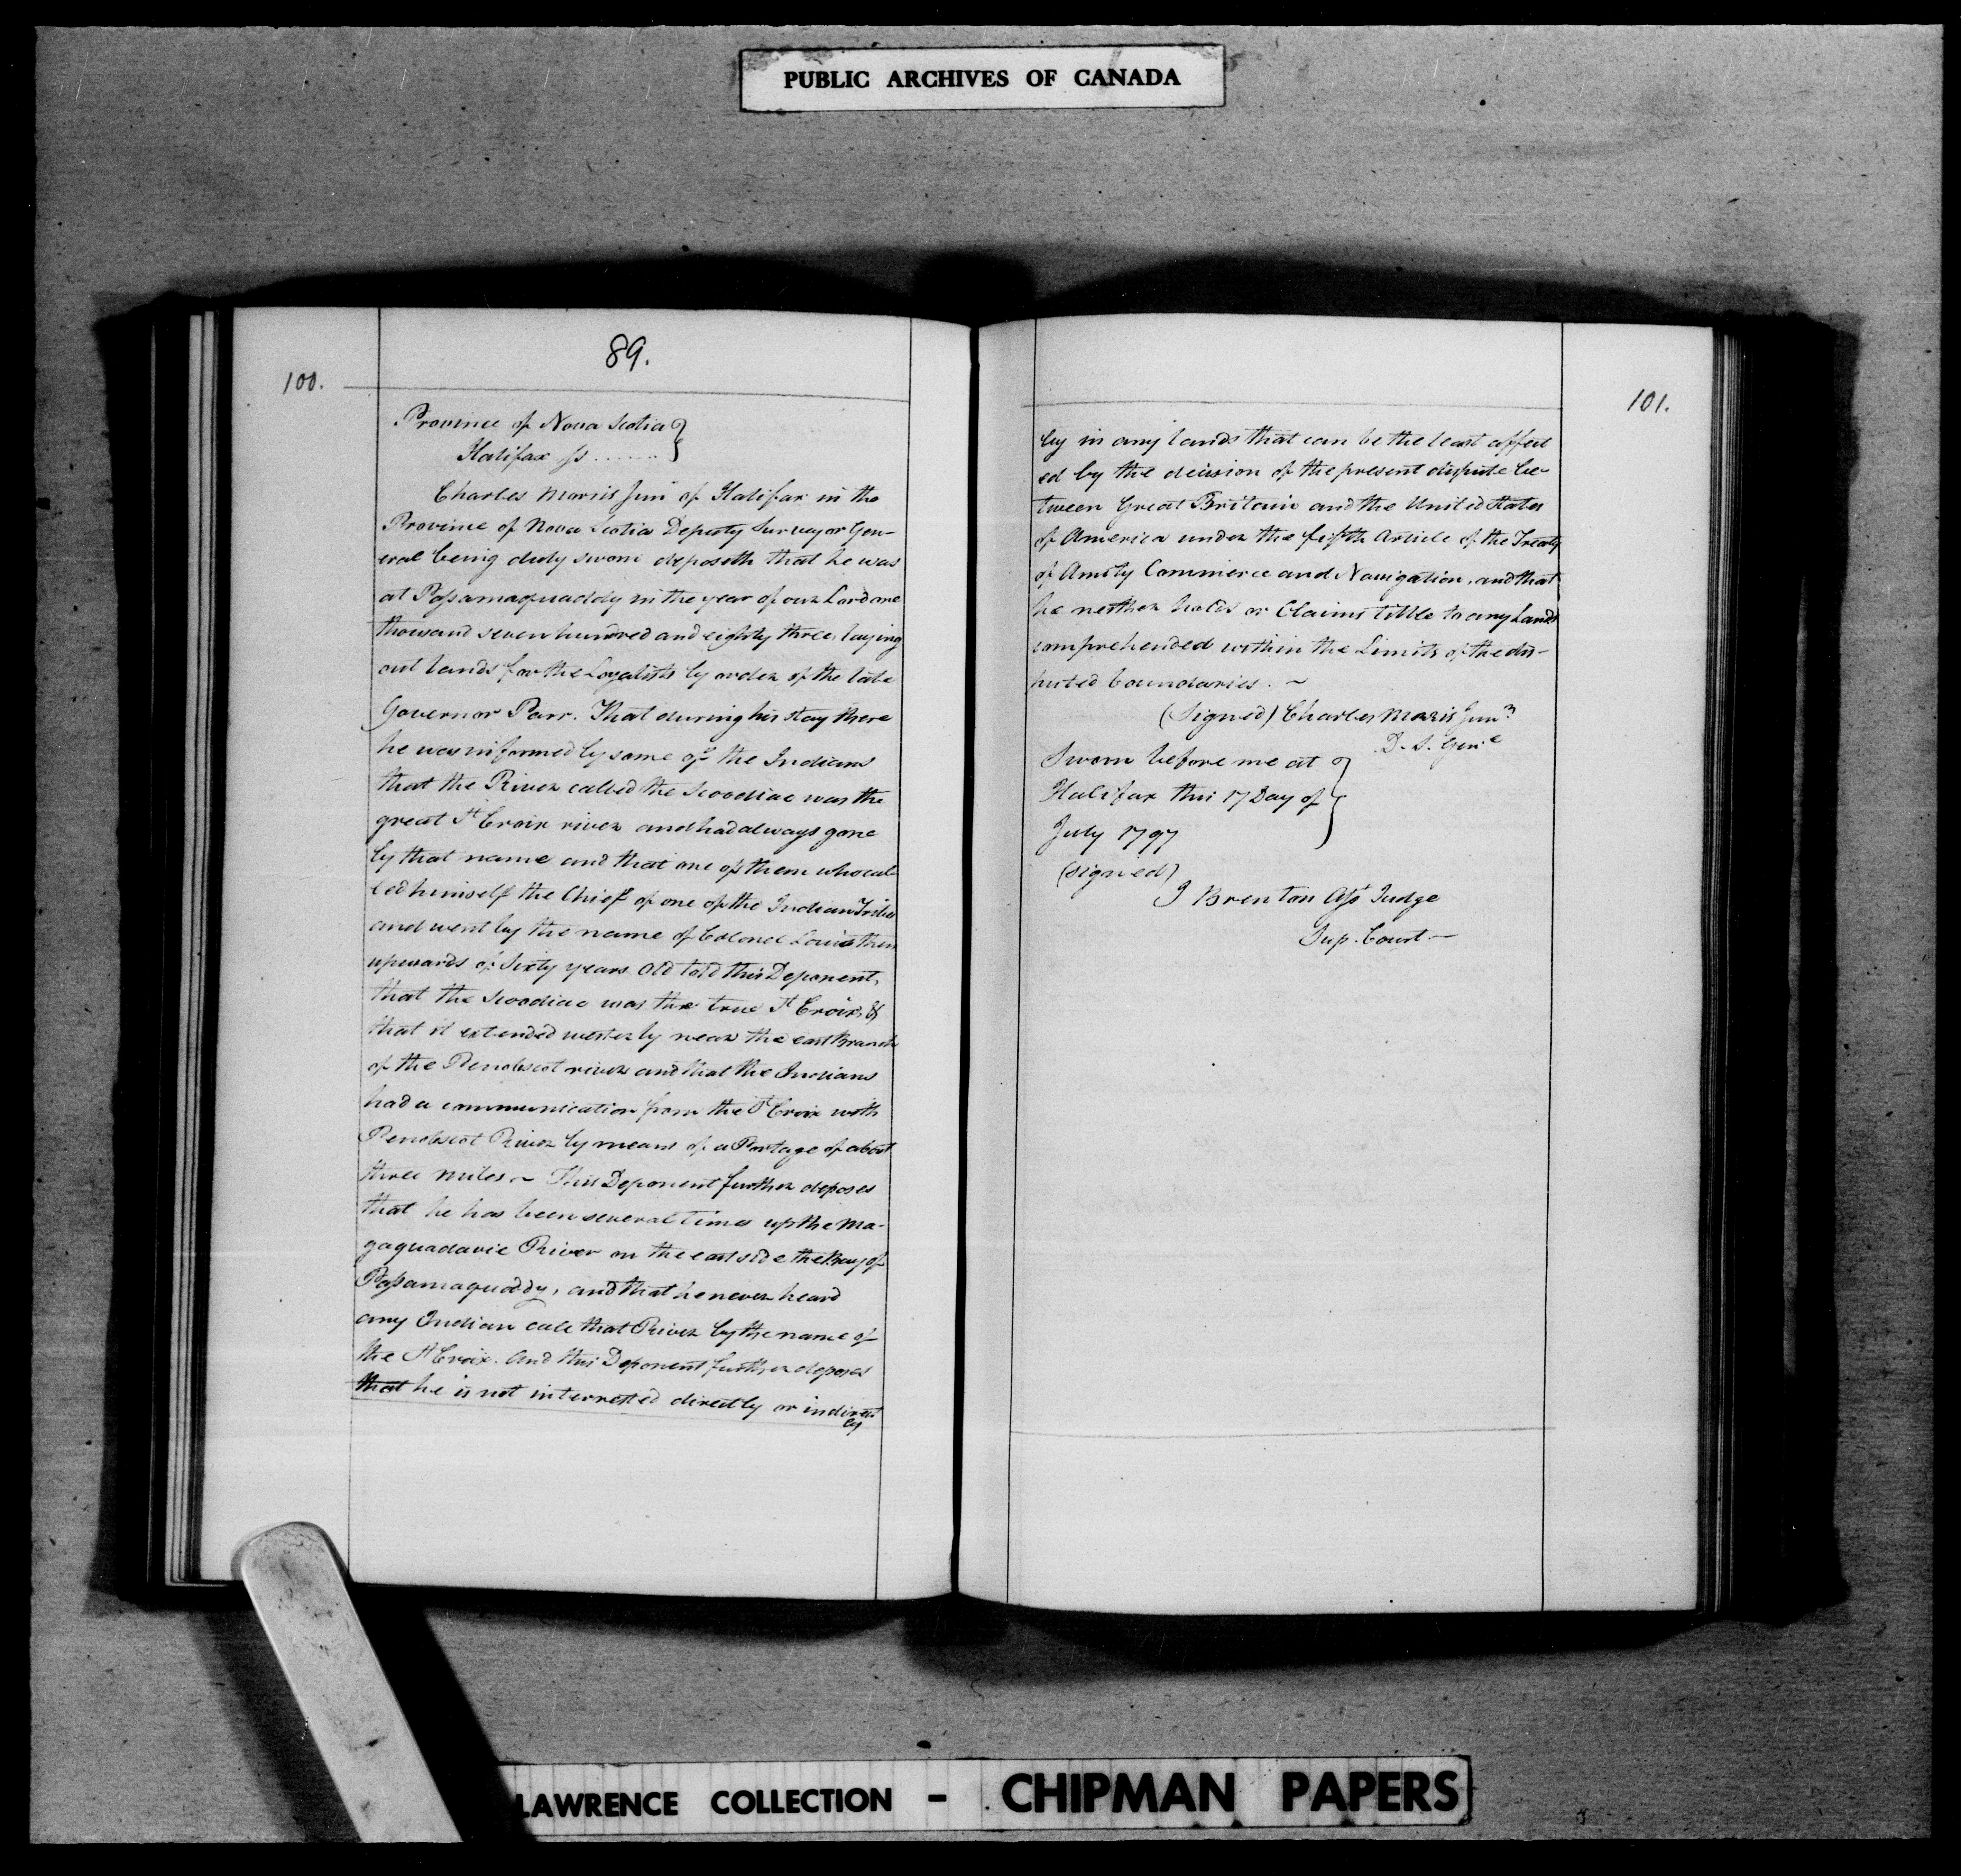 PUBLIC ARCHIVES OF CANADA
100.
89.
Province of Nova Scotia }
Halifax ss ........ }
Charles Morris Jun of Halifax in the
Province of Nova Scotia Deputy Surveyor Gen-
eral being duly sworn deposeth that he was
at Passamaquaddy in the year of our Lord one
thousand seven hundred and eighty three, laying
out lands for the Loyalists by order of the late
Governor Parr. That during his stay there
he was informed by some of the Indians
that the River called the Scoodiac was the
great St Croix river and had always gone
by that name and that one of them who cal-
led himself the Chief of one of the Indian Tribes
and went by the name of Colonel Louis then
upwards of Sixty years old told this Deponent,
that the Scoodiac was the true St Croix, &
that it extended westerly near the east Branch
of the Penobscot river and that the Indians
had a communication from the St Croix with
Penobscot River by means of a Portage of about
three miles ~ This Deponent further deposes
that he has been several times up the Ma-
gaquadavic River on the east side the Bay of
Passamaquoddy, and that he never heard
any Indian call that River by the name of
the St Croix. And this Deponent further deposes
that he is not interrested directly or indirect
ly
101.
ly in any lands that can be the least affect
ed by the decision of the present dispute be-
tween Great Britain and the United States
of America under the fifth Article of the Treaty
of Amity Commerce and Navigation, and that
he neither holds or Claims tittle to any Lands
comprehended within the Limits of the dis-
puted boundaries. ~
(Signed) Charles Morris Junr
D. S. Genl
Sworn before me at }
Halifax this 17 Day of }
July 1797 }
(signed)
J Brenton Asst Judge
Sup. Court —
LAWRENCE COLLECTION - CHIPMAN PAPERS